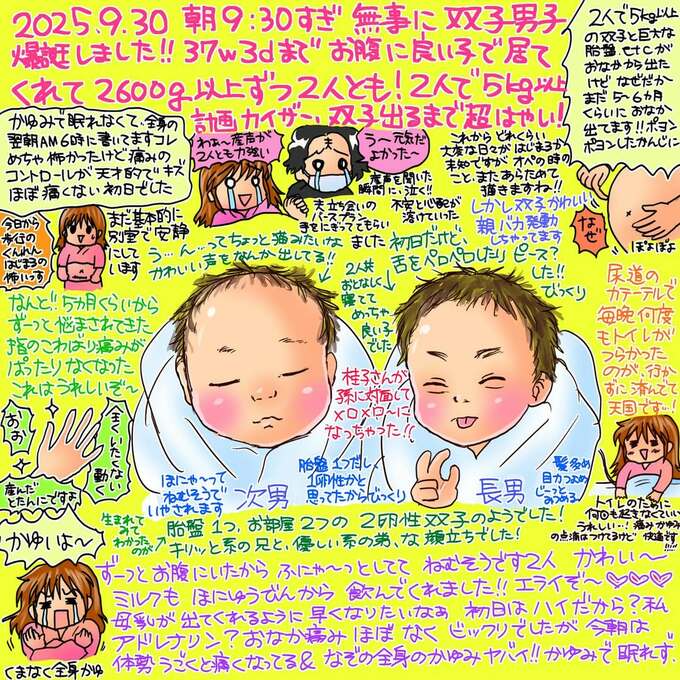 2025.9.30 朝9:30すぎ 無事に 双子男子
爆誕しました!! 37w3dまで お腹に良い子で居て
くれて 2600g以上ずつ 2人とも! 2人で 5kg以上
計画カイザー、双子出るまで超はやい!
2人で5kg以上
の双子と巨大な
胎盤、etcが
おなかから出た
けど なぜだか
まだ 5~6カ月
くらいに おなか
出てます!!ポヨン
ポヨンしたかんじに
なぜ
ぽよぽよ
かゆみで眠れなくて、全身の
翌朝AM6時に書いてますコレ
めちゃ怖かったけど痛みの
コントロールが天才的で キズ
ほぼ痛くない 初日でした
わぁ~産声が
2人とも力強い
う~元気だ
よかった~
産声を聞いた
瞬間に、泣く!!
夫立ち会いの
バースプラン
手をにぎっててもらい
ました
不安と心配が
溶けていった
これから どれくらい
大変な日々が はじまるか
未知ですが オペの時の
こと、また あらためて
描きますね!!
しかし双子かわいい
親バカ発動
しちゃってます
今日から
歩行の
くんれん
はじまるの
怖いっす
まだ基本的に
別室で安静
にして
います
う…ん…ってちょっと痛みたいな
かわいい声をなんか出してる!!
初日だけど、
舌をペロペロしたり ピース?
した!!
びっくり
2人共
おとなしく
寝てて
めっちゃ
良い子
でした
なんと!! 5カ月くらいから
ずーっと悩まされてきた
指のこわばり痛みが
ぱったりなくなった
これはうれしいぞ~
おお
全くいたくない
動く
産んだ
とたんにですよ
桂子さんが
孫に対面して
メロメロ~に
なっちゃった!!
尿道の
カテーテルで
毎晩何度
もトイレが
つらかった
のが、行か
ずに済んでて
天国です…!
トイレのために
何回も起きなくていい
うれしい…! 痛みかゆみ
の点滴はつけてるけど 快適です!!!
ほにゃ~って
ねむそうで
いやされます
次男
胎盤1つだし、
1卵性かと
思ってたからびっくり
長男
髪多め
目力つよめ
じっと
みつめる
生まれて
みて
わかった
のが
胎盤 1つ、お部屋 2つの 2卵性双子のようでした!
キリッと系の兄と、優しい系の弟、な 顔立ちでした!
かゆいよ~
くまなく全身かゆ
ずーっとお腹にいたから ふにゃ~っとしてて ねむそうです2人 かわいい~
ミルクも ほにゅうびんから 飲んでくれました!! エライぞ~♡♡♡
母乳が 出てくれるように 早くなりたいなぁ 初日は ハイだから?私
アドレナリン?おなか痛み ほぼ なく ビックリでしたが 今朝は
体勢うごくと痛くなってる& なぞの全身のかゆみヤバイ!! かゆみで 眠れず.